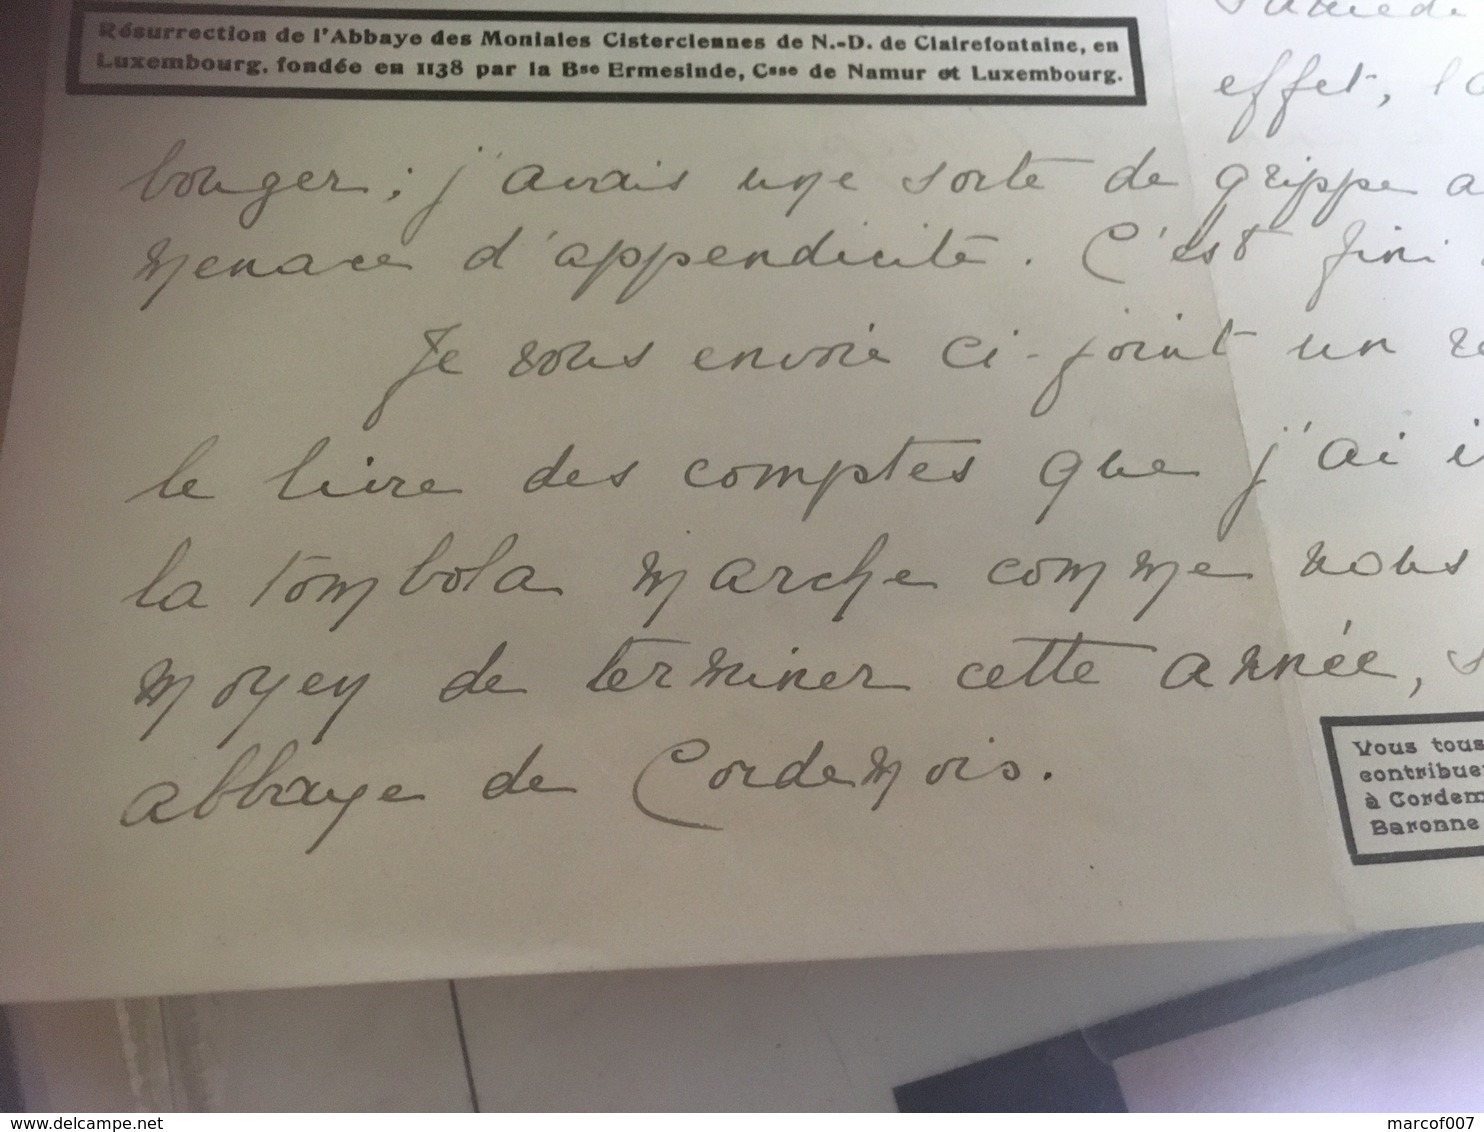 Résurrection de l'Abbaye des Moniales Cisterciennes de N.-D. de Clairefontaine, en
Luxembourg, fondée en 1138 par la Bse Ermesinde, Csse de Namur et Luxembourg.
effet,
bouger; j'avais une sorte de grippe a
menace d'appendicite. C'est fini
Je vous envoie ci-joint un
le livre des comptes que j'ai
la tombola marche comme nous
moyen de terminer cette année, s
abbaye de Cordemois.
Vous tous
contribue
à Cordem
Baronne
www.delcampe.net
marcof007